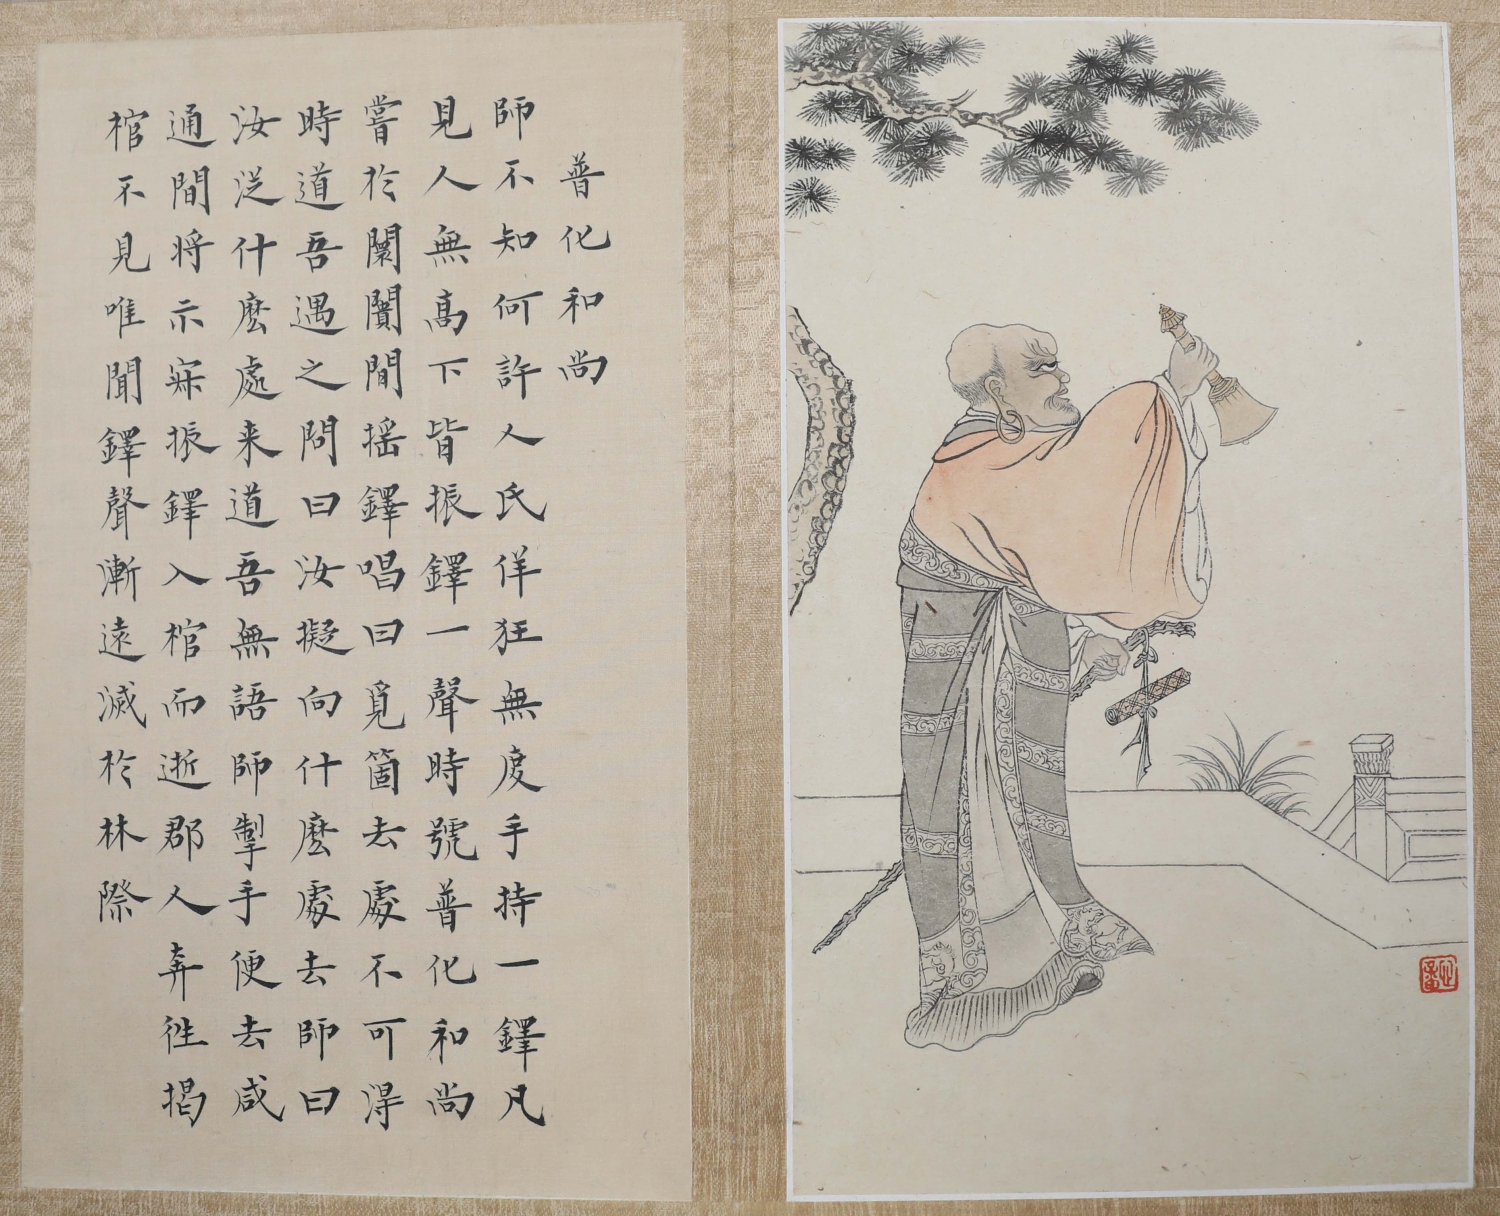 普化和尚
師不知何許人氏佯狂無度手持一鐸凡
見人無高下皆振鐸一聲時號普化和尚
嘗於闤闠間搖鐸唱曰覓箇去處不可得
時道吾遇之問曰汝擬向什麼處去師曰
汝從什麼處来道吾無語師掣手便去咸
通間將示寂振鐸入棺而逝郡人奔徃揭
棺不見唯聞鐸聲漸遠滅於林際